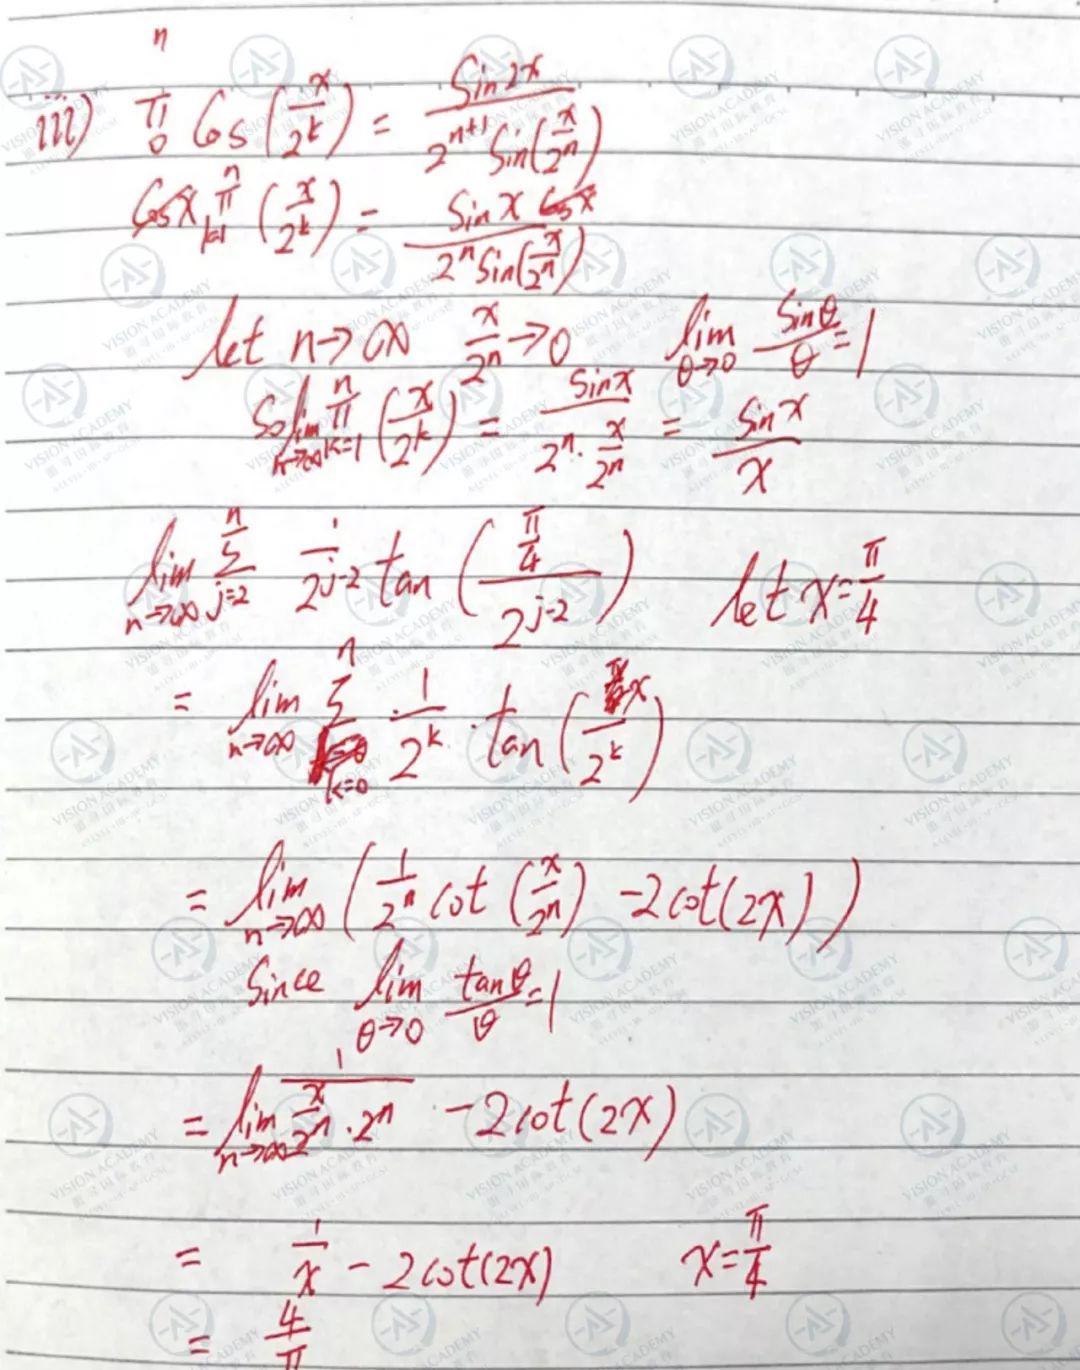 iii) n π 0 Cos (x/2^k) = Sin2x / 2^(n+1) Sin(x/2^n)
Cosx n π k=1 (x/2^k) = Sin x Cos x / 2^n Sin(x/2^n)
let n→∞ x/2^n →0 lim θ→0 Sinθ/θ =1
So lim n→∞ n π k=1 (x/2^k) = Sinx / 2^n · x/2^n = Sin x / x
lim n→∞ n Σ j=2 1/2^(j-2) tan ( π/4 / 2^(j-2) ) let x = π/4
= lim n→∞ n Σ k=0 1/2^k · tan ( x/2^k )
= lim n→∞ ( 1/2^n cot (x/2^n) -2cot(2x) )
Since lim θ→0 tanθ/θ =1
= lim n→∞ 1 / x/2^n · 2^n -2cot(2x)
= 1/x - 2cot(2x) x = π/4
= 4/π
VISION ACADEMY